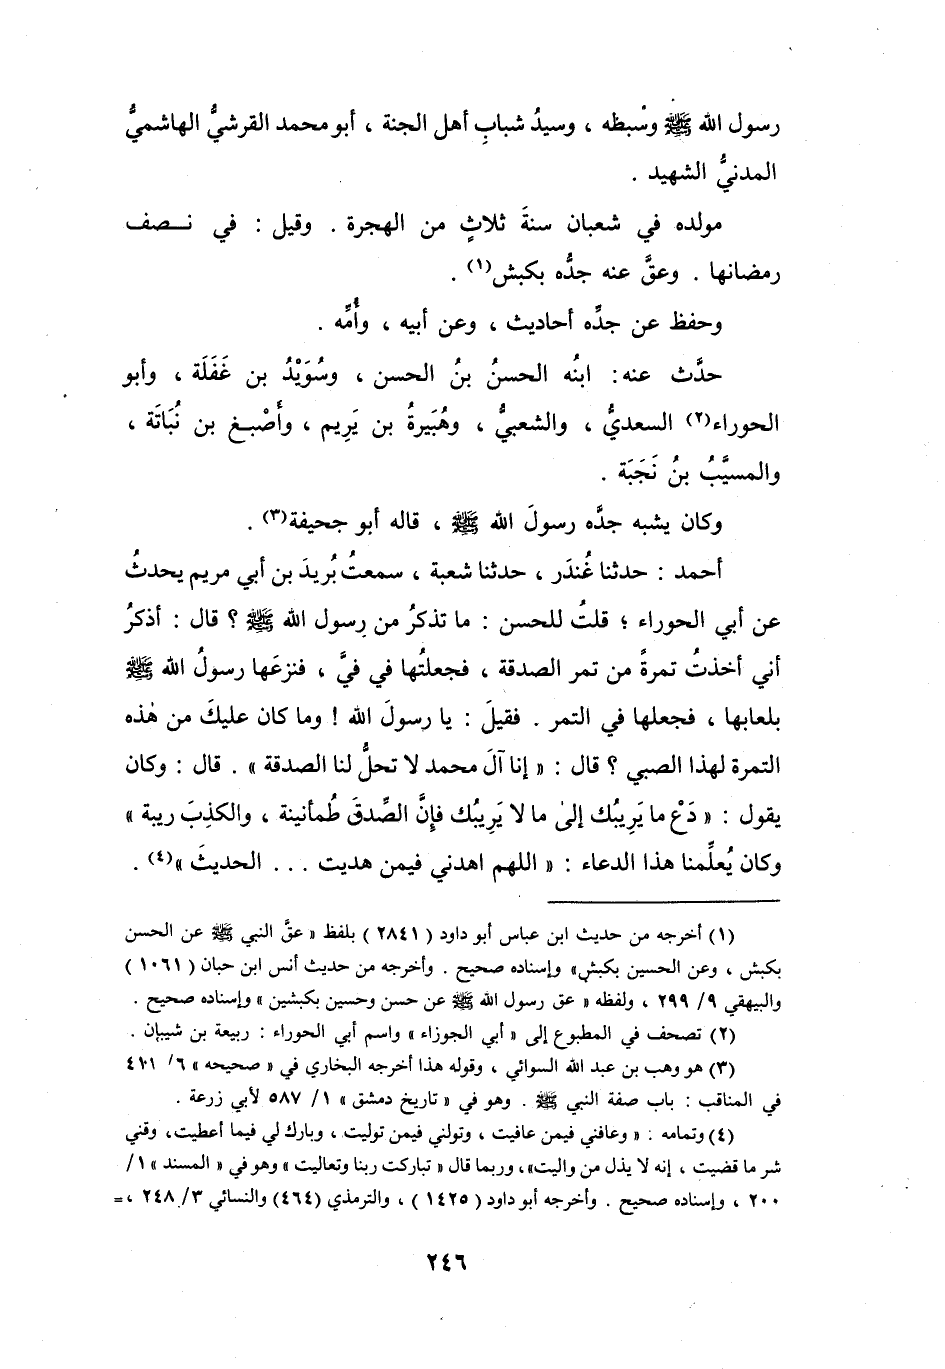 رسول الله ﷺ وسْبطه ، وسيدُ شبابِ أهل الجنة ، أبو محمد القرشيُّ الهاشميُّ
المدنيُّ الشهيد .
مولده في شعبان سنةَ ثلاثٍ من الهجرة . وقيل : في نصف
رمضانها . وعقَّ عنه جدُّه بكبش(١) .
وحفظ عن جدِّه أحاديث ، وعن أبيه ، وأُمِّه .
حدَّث عنه: ابنُه الحسنُ بنُ الحسن ، وسُوَيْدُ بن غَفَلَة ، وأبو
الحوراء(٢) السعديُّ ، والشعبيُّ ، وهُبَيرةُ بن يَرِيم ، وأَصْبغ بن نُبَاتَة ،
والمسيَّبُ بنُ نَجَبَة .
وكان يشبه جدَّه رسولَ الله ﷺ ، قاله أبو جحيفة(٣) .
أحمد : حدثنا غُندَر ، حدثنا شعبة ، سمعتُ بُريدَ بن أبي مريم يحدثُ
عن أبي الحوراء ؛ قلتُ للحسن : ما تذكرُ من رسول الله ﷺ ؟ قال : أذكرُ
أني أخذتُ تمرةً من تمر الصدقة ، فجعلتُها في فيَّ ، فنزعَها رسولُ الله ﷺ
بلعابها ، فجعلها في التمر . فقيلَ : يا رسولَ الله ! وما كان عليكَ من هٰذه
التمرة لهذا الصبي ؟ قال : « إنا آلَ محمد لا تحلُّ لنا الصدقة » . قال : وكان
يقول : « دَعْ ما يَرِيبُك إلىٰ ما لا يَرِيبُك فإنَّ الصِّدقَ طُمأنينة ، والكذِبَ ريبة »
وكان يُعلِّمنا هذا الدعاء : « اللهم اهدني فيمن هديت . . . الحديثَ »(٤) .
(١) أخرجه من حديث ابن عباس أبو داود ( ٢٨٤١ ) بلفظ « عقَّ النبي ﷺ عن الحسن
بكبش ، وعن الحسين بكبش» وإسناده صحيح . وأخرجه من حديث أنس ابن حبان ( ١٠٦١ )
والبيهقي ٩/ ٢٩٩ ، ولفظه « عق رسول الله ﷺ عن حسن وحسين بكبشين » وإسناده صحيح .
(٢) تصحف في المطبوع إلى « أبي الجوزاء » واسم أبي الحوراء : ربيعة بن شيبان .
(٣) هو وهب بن عبد الله السوائي ، وقوله هذا أخرجه البخاري في « صحيحه » ٦/ ٤١١
في المناقب : باب صفة النبي ﷺ . وهو في « تاريخ دمشق » ١/ ٥٨٧ لأبي زرعة .
(٤) وتمامه : « وعافني فيمن عافيت ، وتولني فيمن توليت ، وبارك لي فيما أعطيت، وقني
شر ما قضيت ، إنه لا يذل من واليت»، وربما قال « تباركت ربنا وتعاليت » وهو في « المسند » ١/
٢٠٠ ، وإسناده صحيح . وأخرجه أبو داود ( ١٤٢٥ ) ، والترمذي (٤٦٤) والنسائي ٣/ ٢٤٨ ، =
٢٤٦